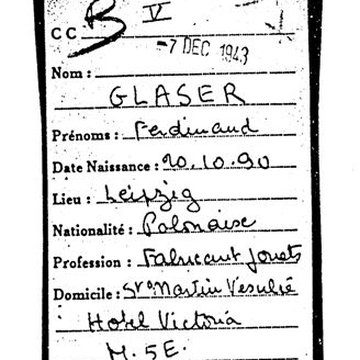 C C : B V
-7 DEC 1943
Nom :
GLASER
Prénoms : Ferdinand
Date Naissance : 20.10.90
Lieu : Leipzig
Nationalité : Polonaise
Profession : Fabricant Jouets
Domicile : St Martin Vesubie
Hotel Victoria
M. 5E.